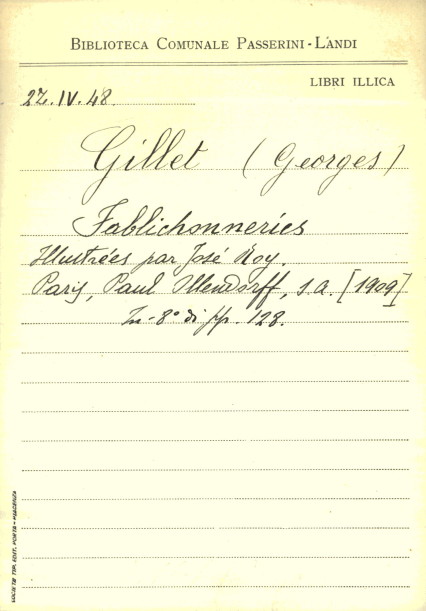 BIBLIOTECA COMUNALE PASSERINI-LANDI
LIBRI ILLICA
27.IV.48.
Gillet (Georges)
Fablichonneries
Illustrées par José Roy.
Paris, Paul Ollendorff, s.a. [1909]
In-8° di pp. 128.
SOCIETÀ TIP. EDIT. PORTA - PIACENZA